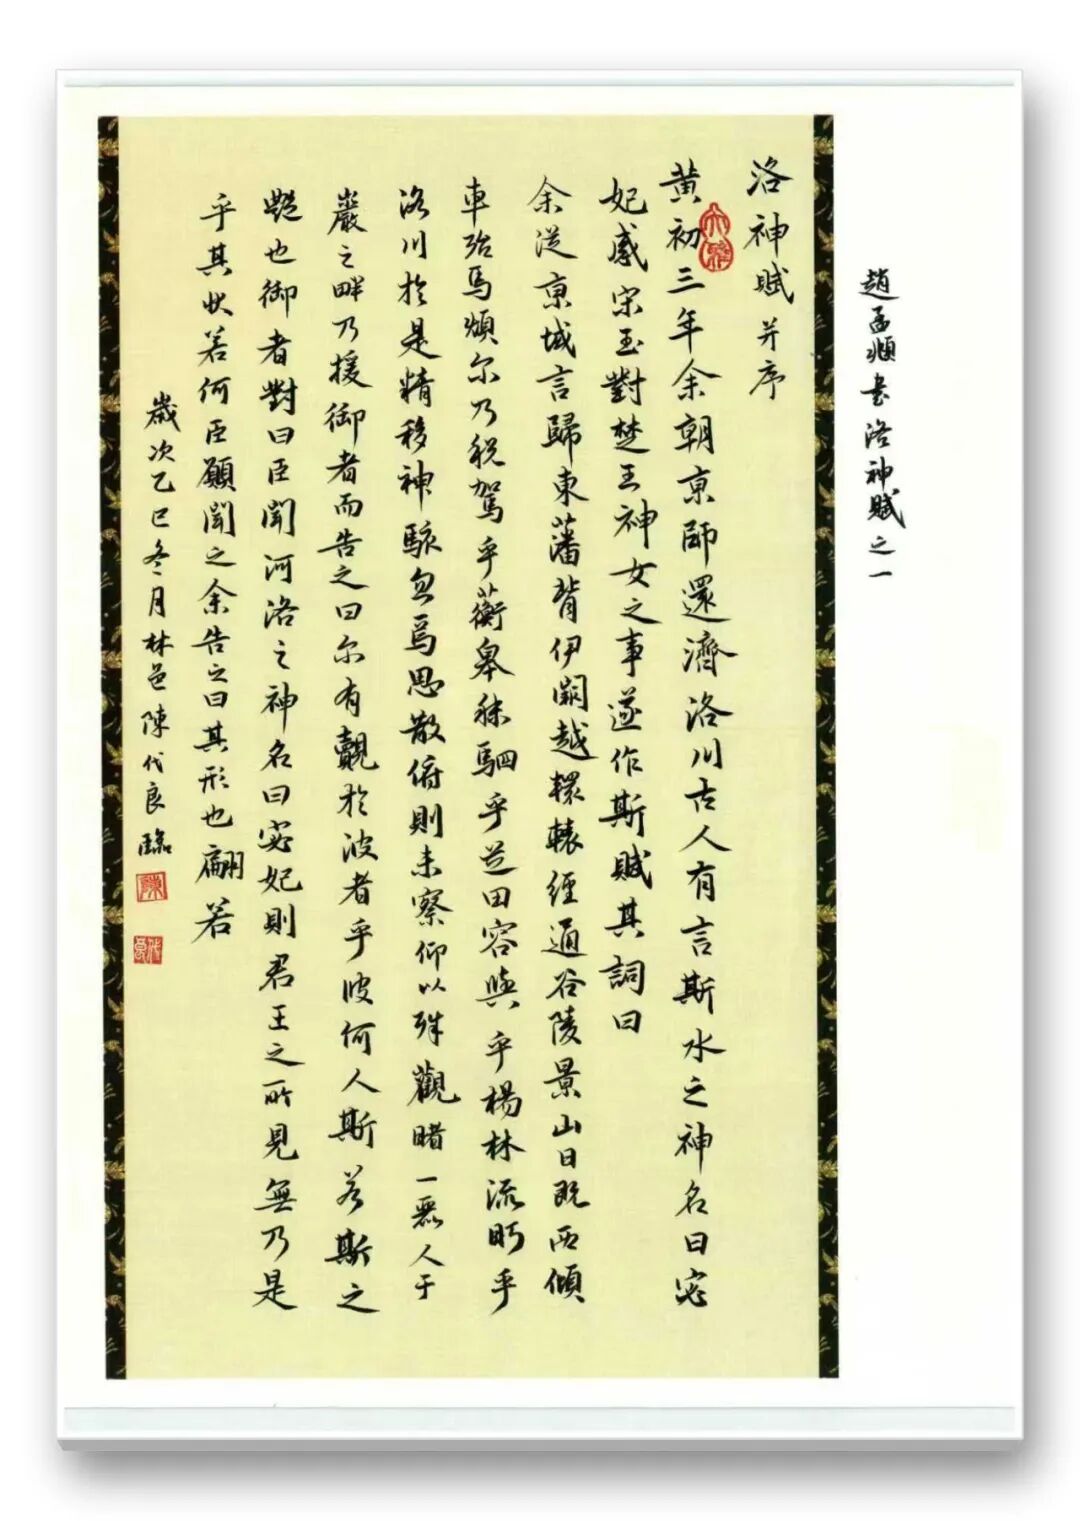 趙孟頫書洛神賦之一
洛神賦并序
黄初三年余朝京師還濟洛川古人有言斯水之神名曰宓
妃感宋玉對楚王神女之事遂作斯賦其詞曰
余從京城言歸東藩背伊闕越轘轅經通谷陵景山日既西傾
車殆馬煩尔乃税駕乎蘅皋秣駟乎芝田容與乎楊林流眄乎
洛川於是精移神駭忽焉思散俯則未察仰以殊觀睹一麗人于
巖之畔乃援御者而告之曰尔有覿於波者乎彼何人斯若斯之
豔也御者對曰臣聞河洛之神名曰宓妃則君王之所見無乃是
乎其状若何臣願聞之余告之曰其形也翩若
歲次乙巳冬月林邑陳代良臨